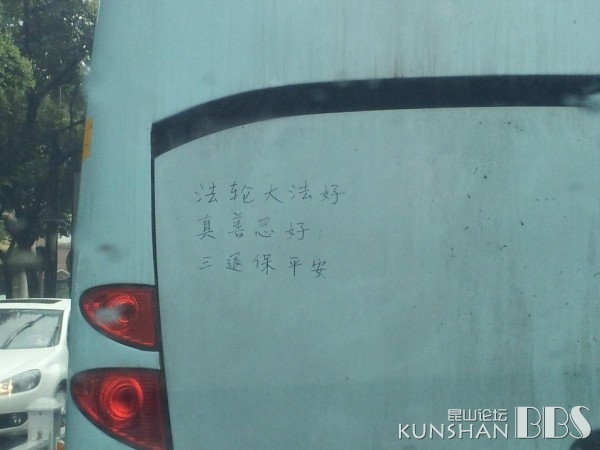 法轮大法好
真善忍好
三退保平安
昆山论坛
KUNSHAN BBS